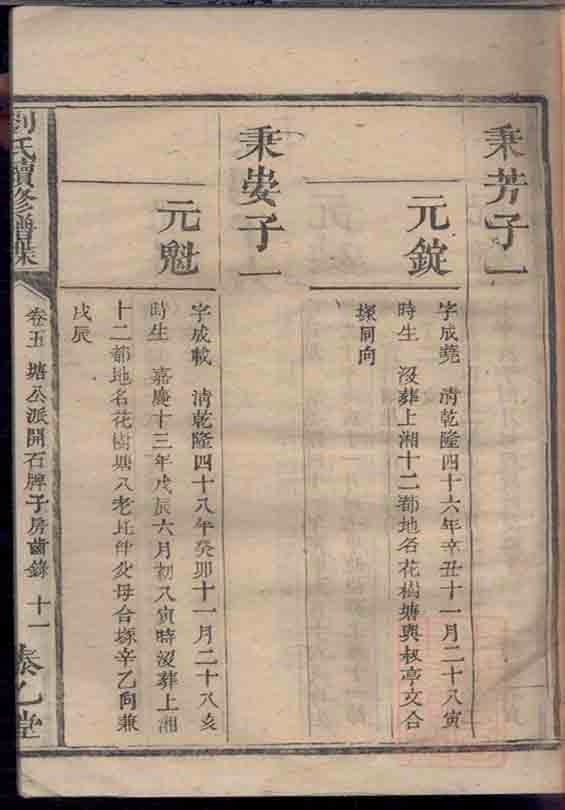 秉芳子一
元錠
字成堯 清乾隆四十六年辛丑十一月二十八寅
時生 沒葬上湘十二都地名花樹塘與叔亭文合
塚同向
秉晏子一
元魁
字成載 清乾隆四十八年癸卯十一月二十八亥
時生 嘉慶十三年戊辰六月初八寅時沒葬上湘
十二都地名花樹塘八老坵仲父母合塚辛乙向兼
戌辰
劉氏續修譜牒
卷五 塘公派開石牌子房齒錄 十一
泰乙堂